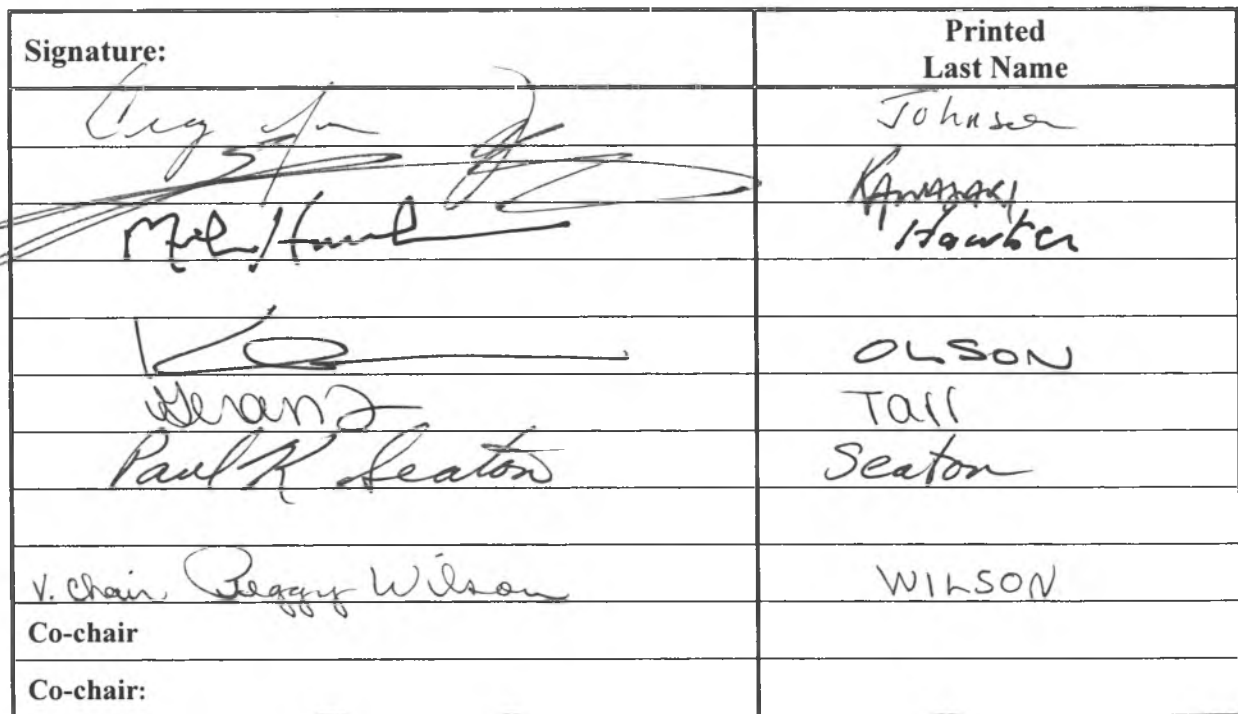 Signature:
Printed
Last Name
Johnson
KAWASAKI
Mike
Hawker
OLSON
Paul K Seaton
Seaton
V. Chair Peggy Wilson
WILSON
Co-chair
Co-chair: